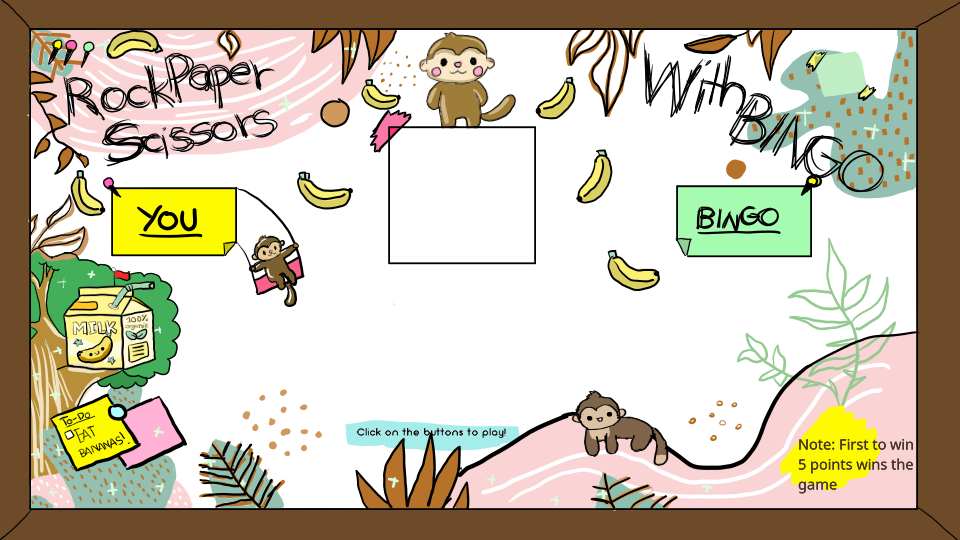 Rock Paper
Scissors
With
BINGO
YOU
BINGO
MILK
100%
organic
To-Do
EAT
BANANAS!.
Click on the buttons to play!
Note: First to win
5 points wins the
game